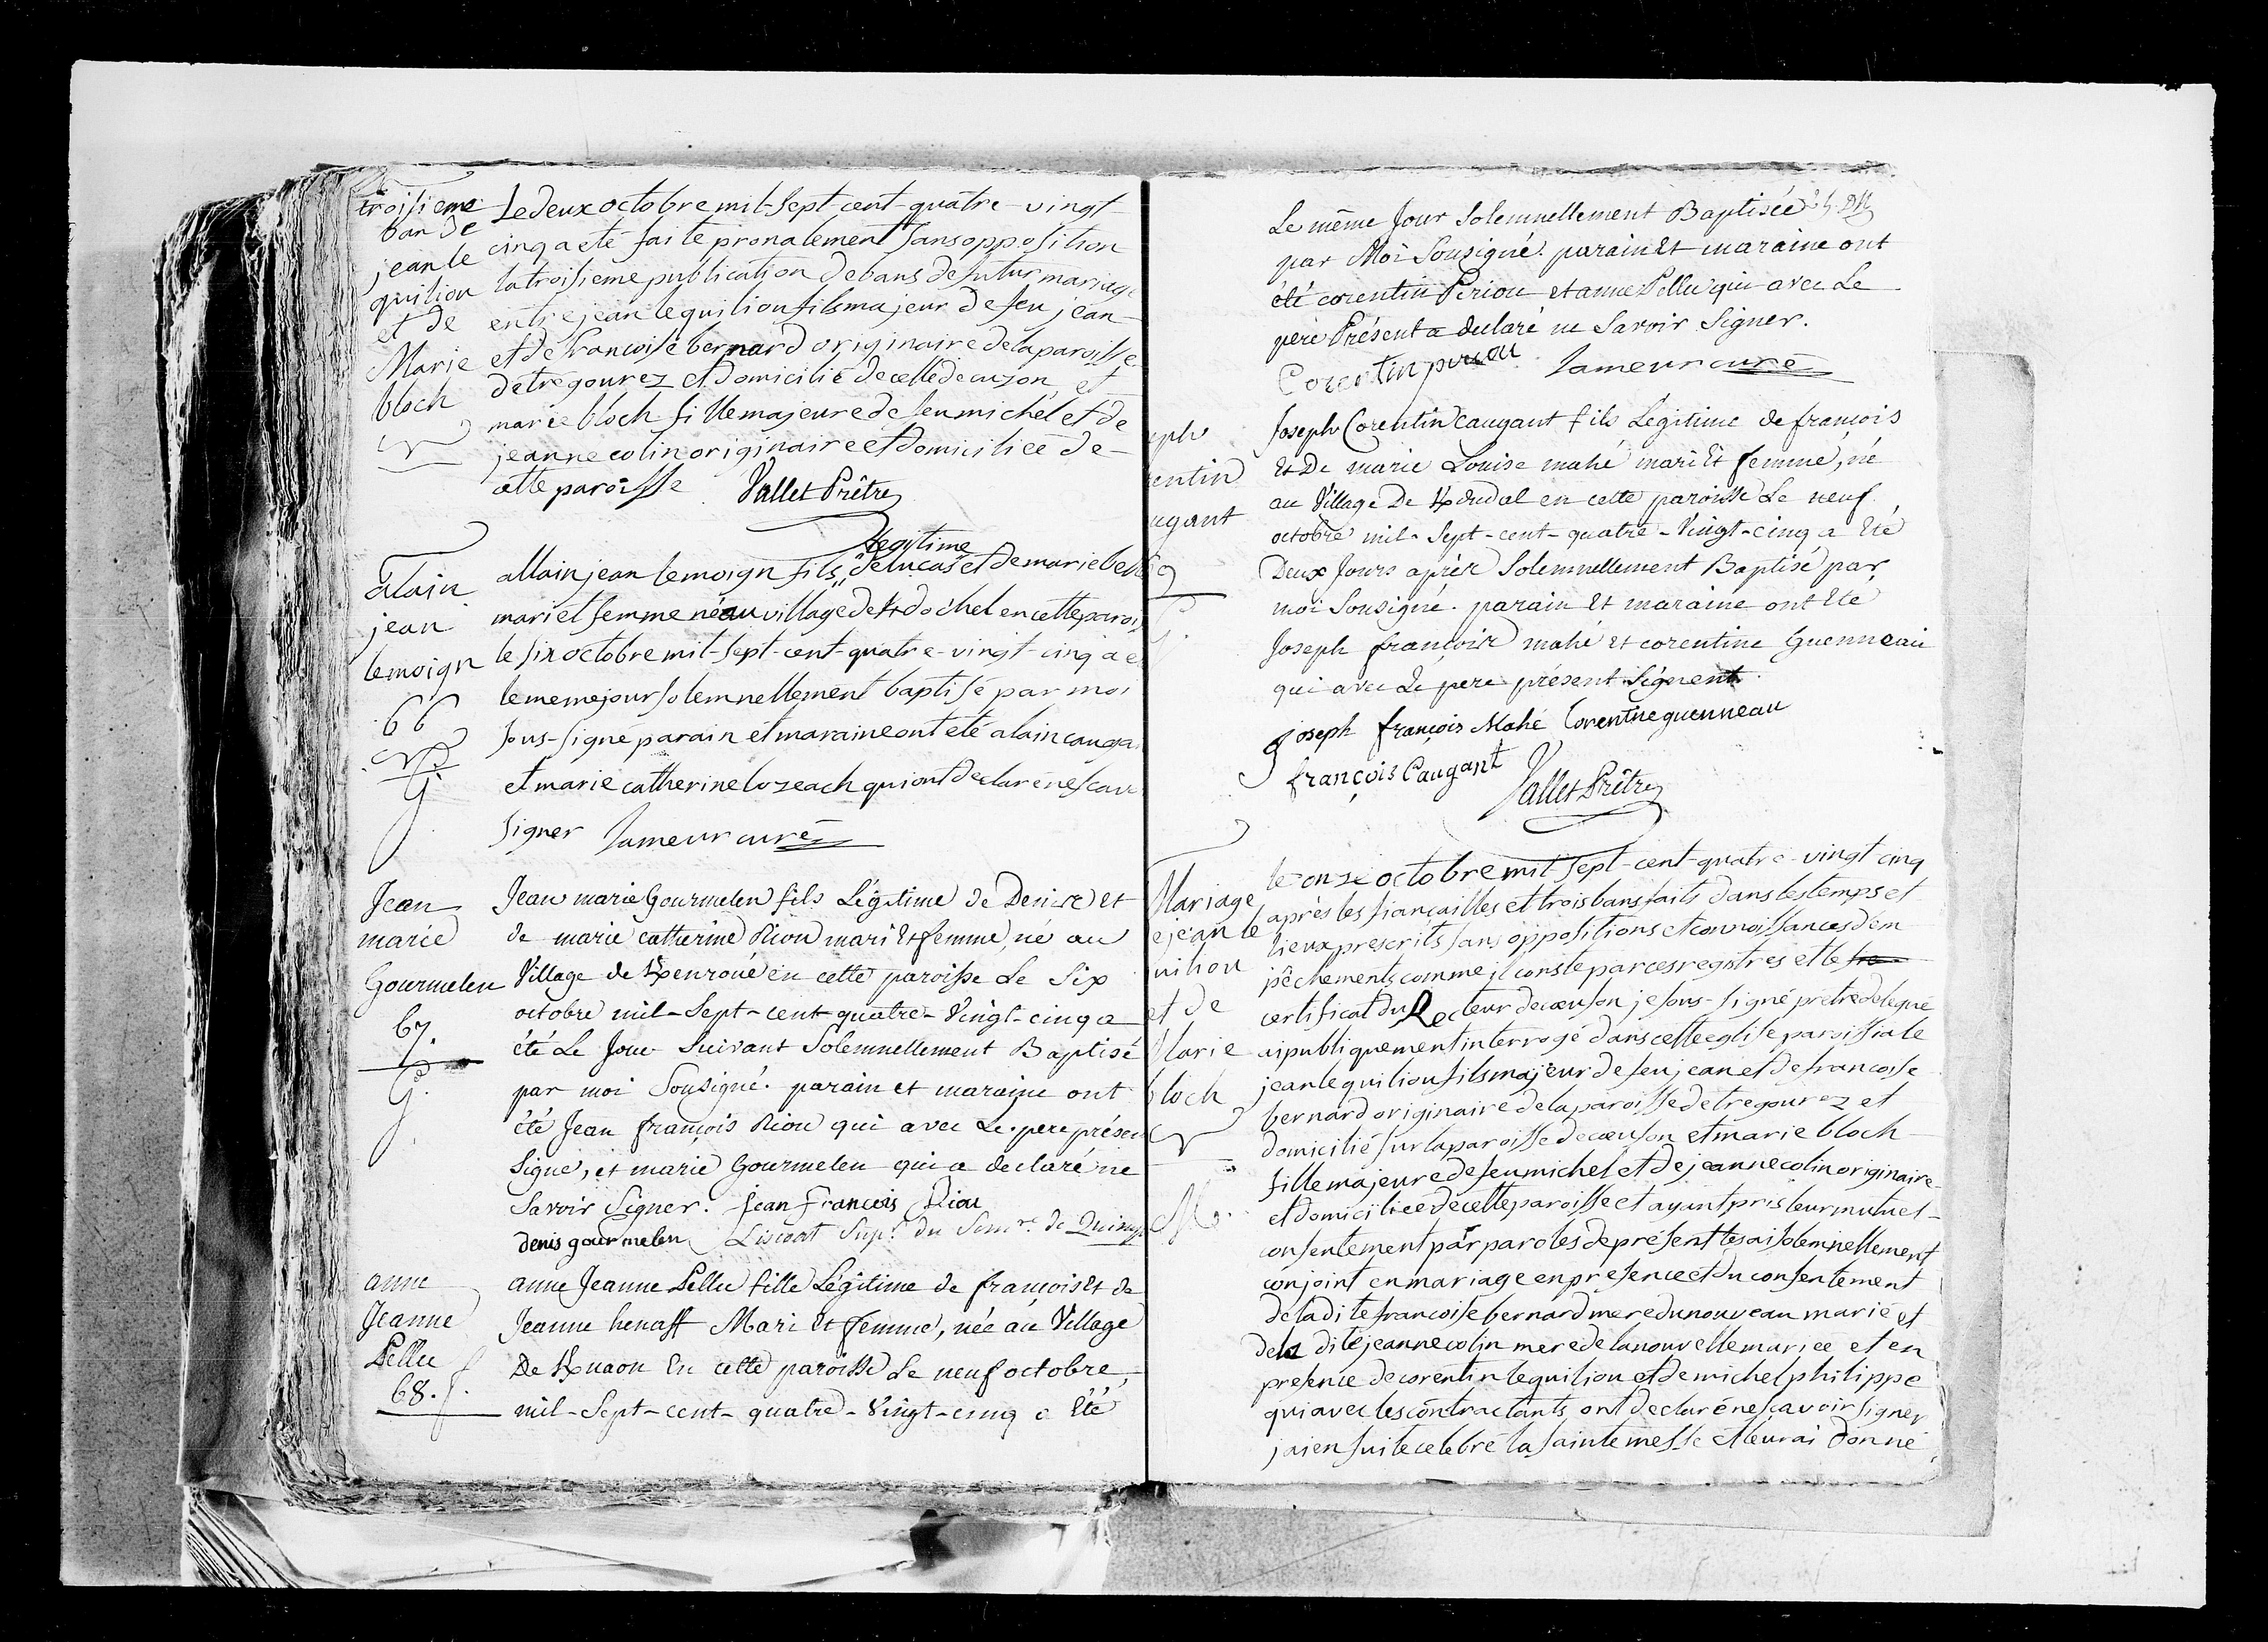 troisieme
ban de
jean le
quiliou
et de
Marie
bloch
Le deux octobre mil-sept-cent-quatre-vingt-
cinq a eté faite pronalement sans opposition
la troisieme publication de bans de futur mariage
entre jean le quiliou fils majeur de feu jean
et de francoise bernard originaire de la paroisse
de trégourez et domicilié de celle de cuzon, et
marie bloch fille majeure de feu michel et de
jeanne colin originaire et domiciliée de-
cette paroisse Vallet Prêtre
alain
jean
lemoign
66
G.
legitime
allain jean lemoign fils de lucas et de marie
mari et femme né au village de Kdochel en cette parois
le six octobre mil-sept-cent-quatre-vingt-cinq a e
le meme jour solemnellement baptisé par moi
sous-signé parain et maraine ont eté alain cauga
et marie catherine lozeach qui ont declaré ne scavoi
signer Jameur curé
Jean
marie
Gourmelen
67.
G.
Jean marie Gourmelen fils Légitime de Denis et
de marie catherine Riou mari Et femme, né au
Village de Kenroué en cette paroisse Le Six
octobre mil-Sept-cent-quatre-Vingt-cinq a
été Le Jour Suivant Solemnellement Baptisé
par moi Sousigné. parain et maraine ont
été Jean françois Riou qui avec Le pere présen
Signe, et marie Gourmelen qui a declaré ne
Savoir Signer. Jean François Riou
denis gourmelen Liscoat Supr. du Semre. de Quimp
anne
Jeanne
Pellec
68. f.
anne Jeanne Pellec fille Légitime de françois Et de
Jeanne henaff Mari Et femme, née au Village
De Knaou En cette paroisse Le neuf octobre,
mil-Sept-cent-quatre-Vingt-cinq a Eté
Le même Jour Solemnellement Baptisée
par Moi Sousigné. parain Et maraine ont
été corentin Periou et anne Pellec qui avec Le
pere Présent a declaré ne Savoir Signer.
Corentin periou Jameur curé
eph
rentin
ugant
69
G.
Joseph Corentin Caugant fils Légitime de françois
Et De marie Louise mahé mari Et femme, né
au Village De Kdudal en cette paroisse Le neuf
octobre mil-Sept-cent-quatre-Vingt-cinq a Eté
Deux Jours après Solemnellement Baptisé par
moi Sousigné. parain Et maraine ont Eté
Joseph françois mahé et corentine Guenneau
qui avec Le pere présent Signent.
joseph françois Mahé Corentine guenneau
françois Caugant Vallet Prêtre
Mariage
e jean le
uiliou
et de
Marie
bloch
M.
le onze octobre mil sept-cent-quatre-vingt cinq
après les fiançailles et trois bans faits dans les temps et
lieux prescrits sans oppositions et connoissances d'em
pêchements comme il conste par ces registres et le
certificat du Recteur de cœuson je sous-signé prêtre delegué
ai publiquement interrogé dans cette eglise paroissiale
jean le quiliou fils majeur de feu jean et de francoise
bernard originaire de la paroisse de tregourez et
domicilié sur la paroisse de cœuson et marie bloch
fille majeure de feu michel et de jeanne colin originaire
et domiciliée de cette paroisse et ayant pris leur mutuel-
consentement par paroles de présent les ai solemnellement
conjoint en mariage en presence et du consentement
de la dite francoise bernard mere du nouveau marié et
de la dite jeanne colin mere de la nouvelle mariée et en
presence de corentin le quiliou et de michel philippe
qui avec les contractants ont declaré ne scavoir signer
j'ai en suite celebré la sainte messe et leur ai donné